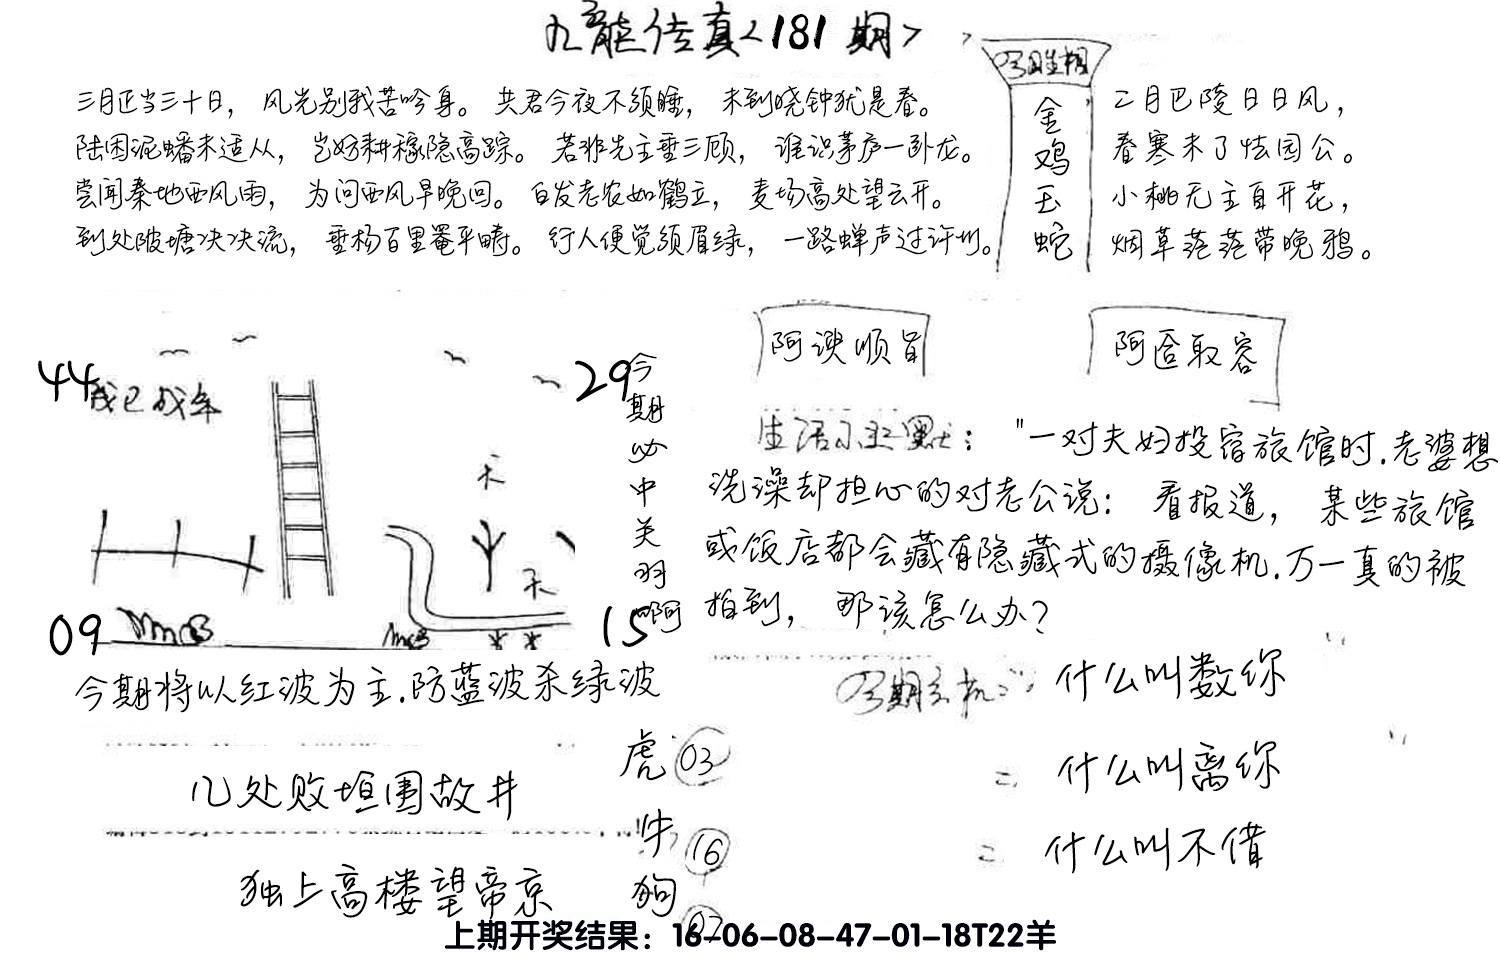 九龙传真<181期>
三月正当三十日，风光别我苦吟身。共君今夜不须睡，未到晓钟犹是春。
陆困泥蟠未适从，岂妨耕稼隐高踪。若非先主垂三顾，谁识茅庐一卧龙。
尝闻秦地西风雨，为问西风早晚回。白发老农如鹤立，麦场高处望云开。
到处陂塘决决流，垂杨百里罨平畴。行人便觉须眉绿，一路蝉声过许州。
金鸡玉蛇
二月巴陵日日风，
春寒未了怯园公。
小桃无主自开花，
烟草茫茫带晚鸦。
44
29
天
天
09
15
今期必中关羽啊
今期将以红波为主.防蓝波杀绿波
阿谀顺旨
阿匼取容
生活小幽默："一对夫妇投宿旅馆时.老婆想
洗澡却担心的对老公说：看报道，某些旅馆
或饭店都会藏有隐藏式的摄像机.万一真的被
拍到，那该怎么办？
什么叫数你
= 什么叫离你
= 什么叫不借
几处败垣围故井
独上高楼望帝京
虎 03
牛 16
狗 07
上期开奖结果：16-06-08-47-01-18T22羊